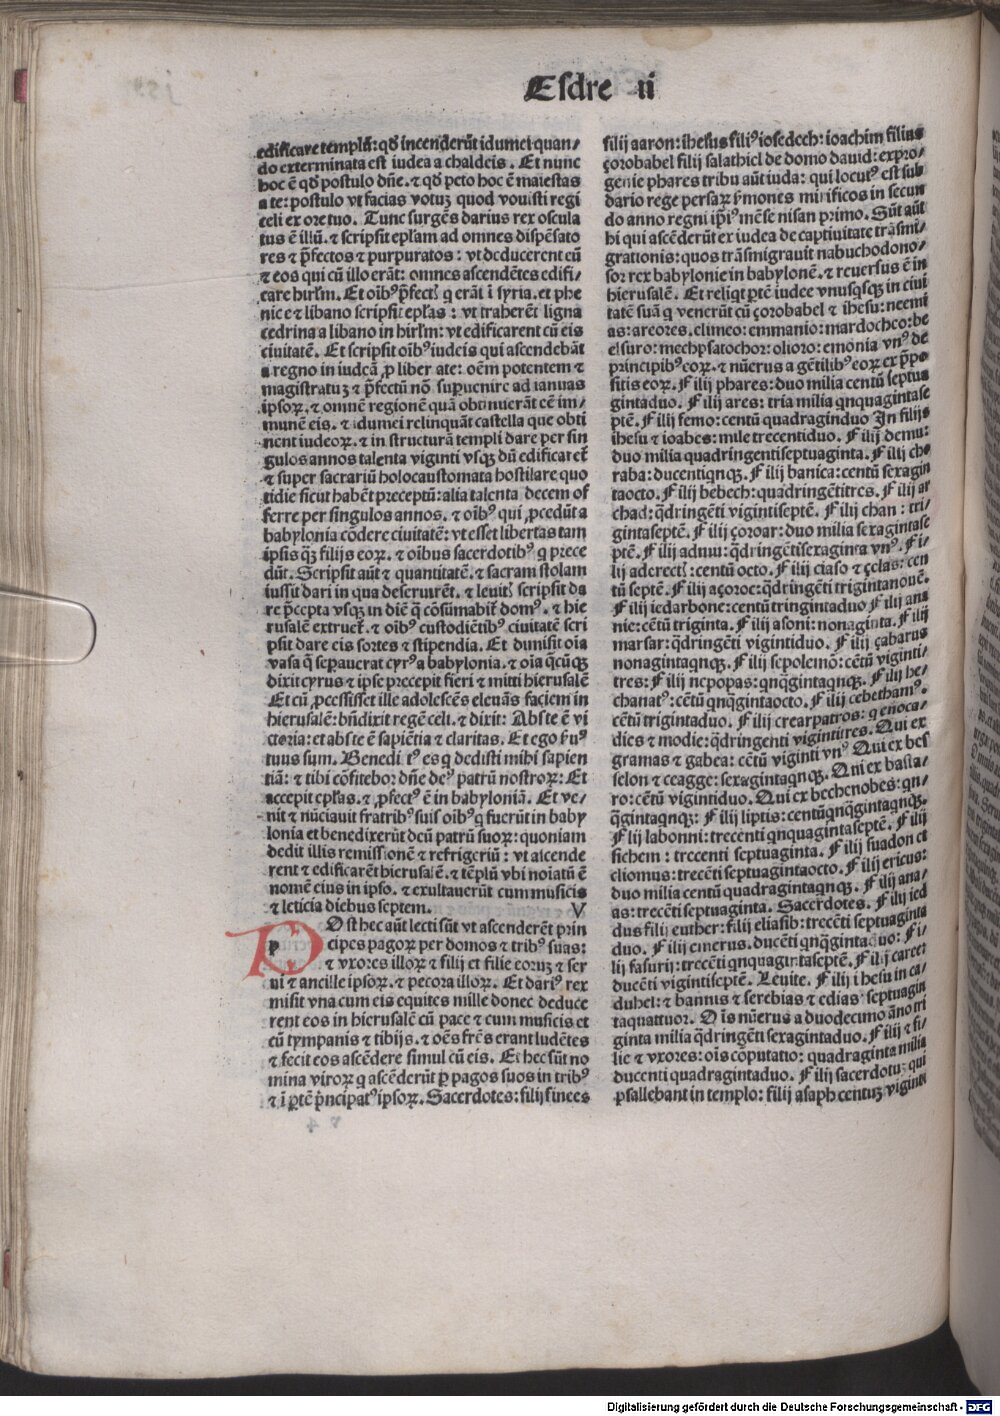 Esdre ii
edificare templū: qđ incenderūt idumei quan/
do exterminata est iudea a chaldeis. Et nunc
hoc ē qđ postulo dñe. ⁊ qđ peto hoc ē maiestas
a te: postulo vt facias votuꝫ quod vouisti regi
celi ex ore tuo. Tunc surgēs darius rex oscula
tus ē illū. ⁊ scripsit epl̄am ad omnes dispēsato
res ⁊ p̄fectos ⁊ purpuratos: vt deducerent eū
⁊ eos qui cū illo erāt: omnes ascendētes edifi/
care hirl̄m. Et oīb⁹ p̄fect⁹ q erāt ī syria. et phe
nice ⁊ libano scripsit epl̄as: vt traherēt ligna
cedrina a libano in hirl̄m: vt edificarent cū eis
ciuitatē. Et scripsit oīb⁹ iudeis qui ascendebāt
a regno in iudeā ꝓ liber ate: oēm potentem ⁊
magistratuꝫ ⁊ p̄fectū nō suꝑuenire ad ianuas
ipsoꝝ. ⁊ omnē regionē quā obtinuerāt eē im/
munē eis. ⁊ idumei relinquāt castella que obti
nent iudeoꝝ. ⁊ in structurā templi dare per sin
gulos annos talenta viginti vsqꝫ dū edificaret̄
⁊ super sacrariū holocaustomata hostilare quo
tidie sicut habēt preceptū: alia talenta decem of
ferre per singulos annos. ⁊ oīb⁹ qui ꝓcedūt a
babylonia cōdere ciuitatē: vt esset libertas tam
ipsis qꝫ filijs eoꝝ. ⁊ oībus sacerdotib⁹ q prece
dūt. Scripsit aūt ⁊ quantitatē. ⁊ sacram stolam
iussit dari in qua deseruirēt. ⁊ leuit⁹ scripsit da
re p̄cepta vsqꝫ in diē q̄ cōsūmabit̄ dom⁹. ⁊ hie
rusalē extruet̄. ⁊ oīb⁹ custodiētib⁹ ciuitatē scri
psit dare eis sortes ⁊ stipendia. Et dimisit oīa
vasa q̄ seꝑauerat cyr⁹ a babylonia. ⁊ oīa q̄cūqꝫ
dixit cyrus ⁊ ipse precepit fieri ⁊ mitti hierusalē
Et cū ꝓcessisset ille adolescēs eleuās faciem in
hierusalē: bn̄dixit regē celi. ⁊ dixit: Abste ē vi
ctoria: et abste ē sapiētia ⁊ claritas. Et ego s̄u⁹
tuus sum. Benedi t⁹ es q dedisti mihi sapien
tiā: ⁊ tibi cōfitebor dñe de⁹ patrū nostroꝝ: Et
accepit epl̄as. ⁊ ꝓfect⁹ ē in babyloniā. Et ve/
nit ⁊ nūciauit fratrib⁹ suis oīb⁹ q fuerūt in baby
lonia et benedixerūt deū patrū suoꝝ: quoniam
dedit illis remissionē ⁊ refrigeriū: vt ascende
rent ⁊ edificarēt hierusalē. ⁊ tēplū vbi noīatū ē
nomē eius in ipso. ⁊ exultauerūt cum musicis
⁊ leticia diebus septem. V
Ost hec aūt lecti sūt vt ascenderēt prin
p cipes pagoꝝ per domos ⁊ trib⁹ suas:
⁊ vxores illoꝝ ⁊ filij et filie eoruꝫ ⁊ ser
ui ⁊ ancille ipsoꝝ. ⁊ pecora illoꝝ. Et dari⁹ rex
misit vna cum eis equites mille donec deduce
rent eos in hierusalē cū pace ⁊ cum musicis et
cū tympanis ⁊ tibijs. ⁊ oēs fr̄es erant ludētes
⁊ fecit eos ascēdere simul cū eis. Et hec sūt no
mina viroꝝ q ascēderūt ꝑ pagos suos in trib⁹
⁊ ī ꝑtē p̄ncipat⁹ ipsoꝝ. Sacerdotes: filij finees
filij aaron: ihesus fili⁹ iosedech: ioachim filius
çorobabel filij salathiel de domo dauid: expro/
genie phares tribu aūt iuda: qui locut⁹ est sub
dario rege persaꝝ s̄mones mirificos in secun
do anno regni ip̄i⁹ mēse nisan primo. Sūt aūt
hi qui ascēderūt ex iudea de captiuitate trāsmi/
grationis: quos trāsmigrauit nabuchodono/
sor rex babylonie in babylonē. ⁊ reuersus ē in
hierusalē. Et reliq̄t ꝑtē iudee vnusqsqꝫ in ciui
tatē suā q venerūt cū çorobabel ⁊ ihesu: neemi
as: areores. elimeo: emmanio: mardocheo: be
elsuro: mechpsatochor: olioro: emonia vn⁹ de
principib⁹ eoꝝ. ⁊ nūerus a gētilib⁹ eoꝝ ex p̄po
sitis eoꝝ. Filij phares: duo milia centū septua
gintaduo. Filij ares: tria milia qnquagintase
ptē. Filij femo: centū quadraginduo In filijs
ihesu ⁊ ioabes: mille trecentiduo. Filij demu:
duo milia quadringentiseptuaginta. Filij cho
raba: ducentiqnqꝫ. Filij banica: centū sexagin
taocto. Filij bebech: quadringētitres. Filij ar
chad: q̄dringēti vigintiseptē. Filij chan: tri/
gintaseptē. Filij çoroar: duo milia sexagintase
ptē. Filij adnui: q̄dringētisexaginta vn⁹. Fi/
lij aderect⁹: centū octo. Filij ciaso ⁊ çelas: cen
tū septē. Filij açoroc: q̄dringēti trigintanouē.
Filij iedarbone: centū tringintaduo Filij ana
nie: centū triginta. Filij asoni: nonaginta. Filij
marsar: q̄dringēti vigintiduo. Filij çabarus
nonagintaqnqꝫ. Filij sepolemō: cētū viginti/
tres: Filij nepopas: qnq̄gintaqnqꝫ. Filij he/
chanat⁹: cētū qnq̄gintaocto. Filij cebetham⁹.
cētū trigintaduo. Filij crearpatros: q enoca/
dies ⁊ modie: q̄dringenti vigintitres. Qui ex
gramas ⁊ gabea: cētū viginti vn⁹ Qui ex bes
selon ⁊ ceagge: sexagintaqnqꝫ. Qui ex basta/
ro: cētū vigintiduo. Qui ex bechenobes: qn/
q̄gintaqnqꝫ: Filij liptis: centūqnq̄gintaqnqꝫ.
Filij labonni: trecenti qnquagintaseptē. Filij
sichem: trecenti septuaginta. Filij suadon et
cliomus: trecēti septuagintaocto. Filij ericus:
duo milia centū quadragintaqnqꝫ. Filij ana/
as: trecēti septuaginta. Sacerdotes. Filij ied
dus filij euther: filij eliasib: trecēti septuaginta
duo. Filij emerus. ducēti qnq̄gintaduo: Fi/
lij fasurij: trecēti qnquagintaseptē. Filij career
ducēti vigintiseptē. Leuite. Filij ihesu in ca/
duhel: ⁊ bannus ⁊ serebias ⁊ edias: septuagin
taquattuor. Oīs nūerus a duodecimo āno tri
ginta milia q̄dringēti sexagintaduo. Filij ⁊ fi/
lie ⁊ vxores: oīs cōputatio: quadraginta milia
ducenti quadragintaduo. Filij sacerdotuꝫ qui
psallebant in templo: filij asaph centuꝫ viginti
Digitalisierung gefördert durch die Deutsche Forschungsgemeinschaft - DFG